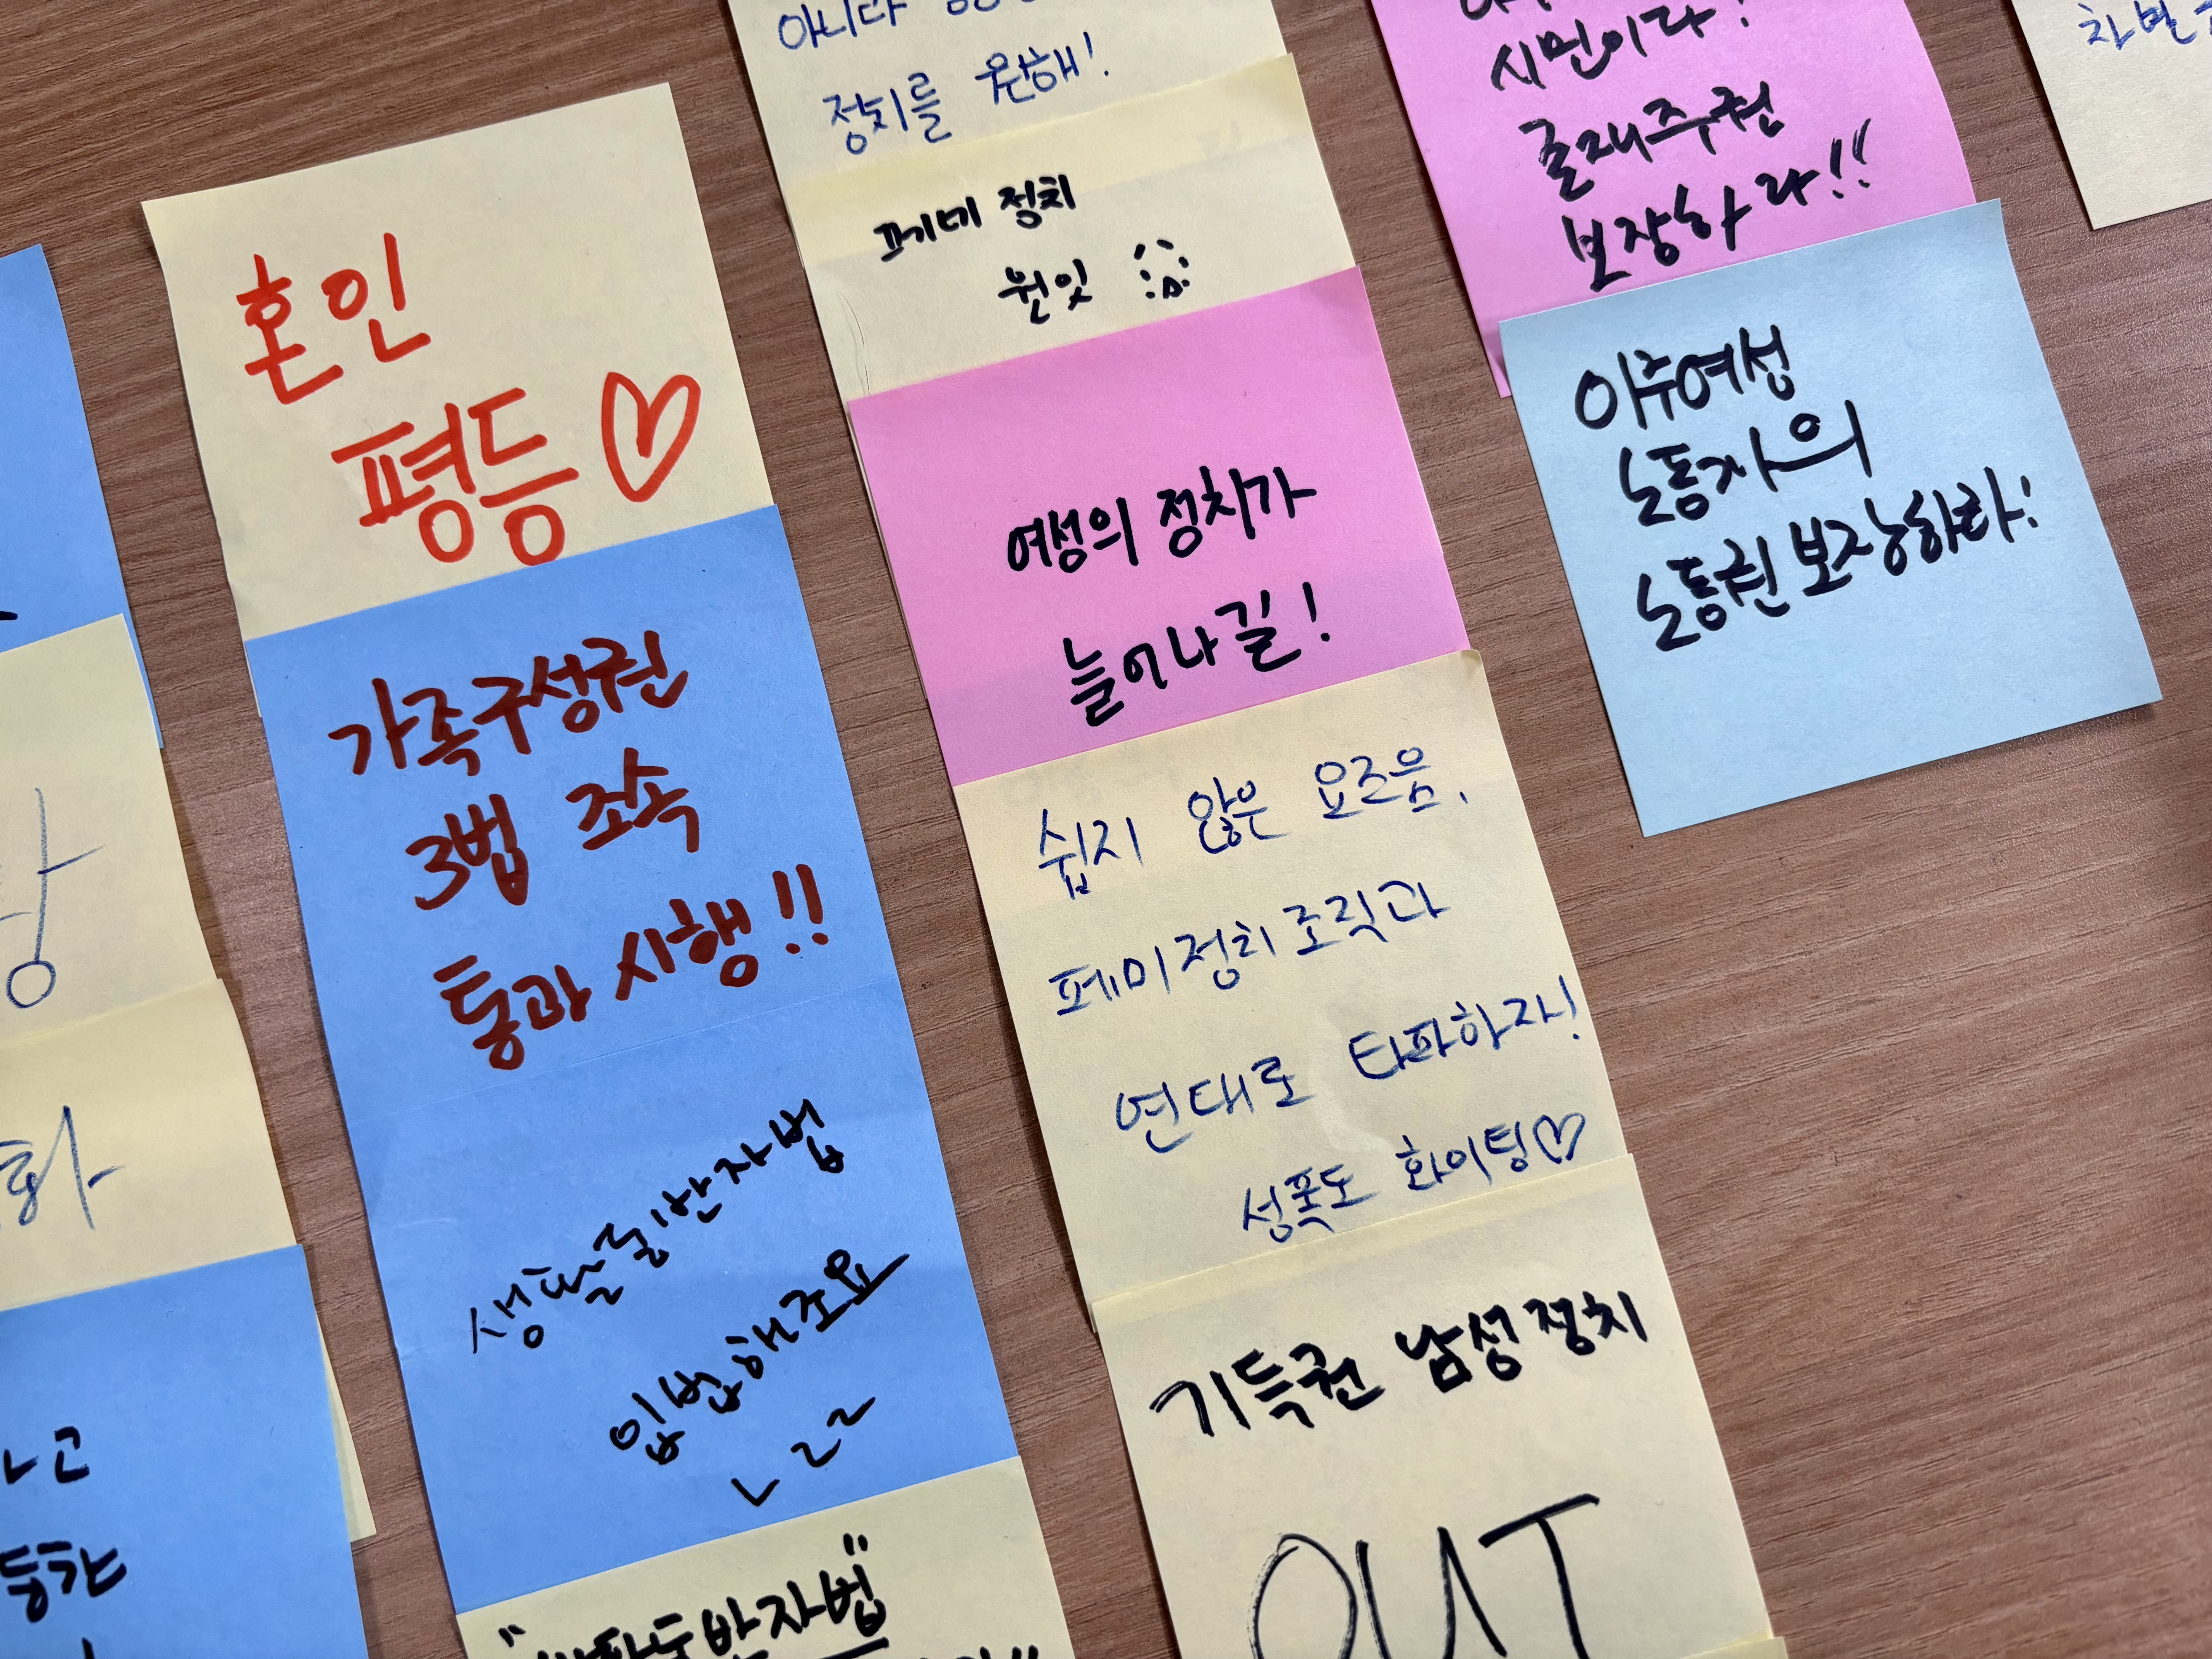 혼인
평등♡
가족구성권
3법 조속
통과 시행!!
생활동반자법
입법해주요
아니다
정치를 원해!
페미 정치
원잇
여성의 정치가
늘어나길!
쉽지 않은 요즈음,
페미정치조직과
연대로 타파하자!
성폭도 화이팅♡
기득권 남성정치
OUT
시민이다!
출재주권
보장하라!!
이주여성
노동자의
노동권 보장하라!